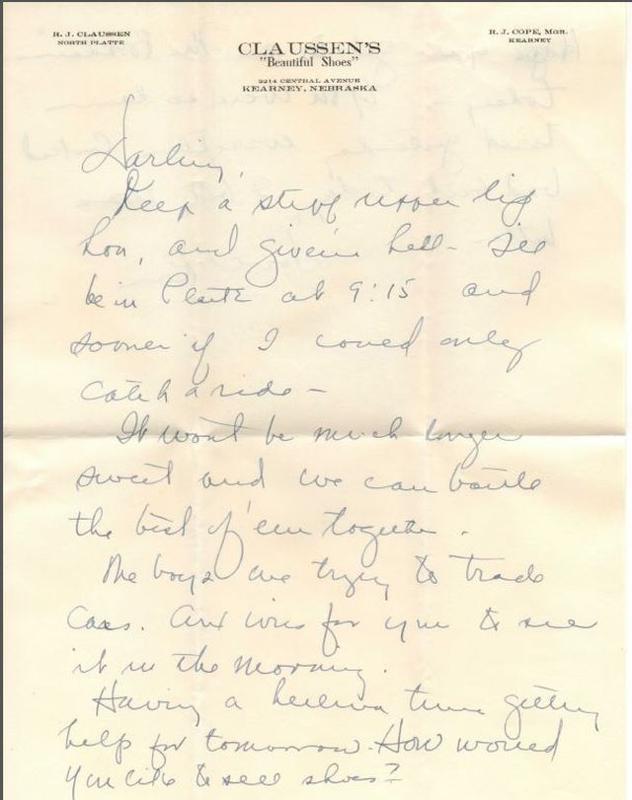 R. J. CLAUSSEN
NORTH PLATTE
R. J. COPE, MGR.
KEARNEY
CLAUSSEN'S
"Beautiful Shoes"
2214 CENTRAL AVENUE
KEARNEY, NEBRASKA
Darling,
Keep a stiff upper lip
hon, and give'em hell - I'll
be in Platte at 9:15 and
sooner if I could only
catch a ride -
It won't be much longer
sweet and we can battle
the best of 'em together.
The boys are trying to trade
cars. Anxious for you to see
it in the morning.
Having a helluva time getting
help for tomorrow. How would
you like to sell shoes?